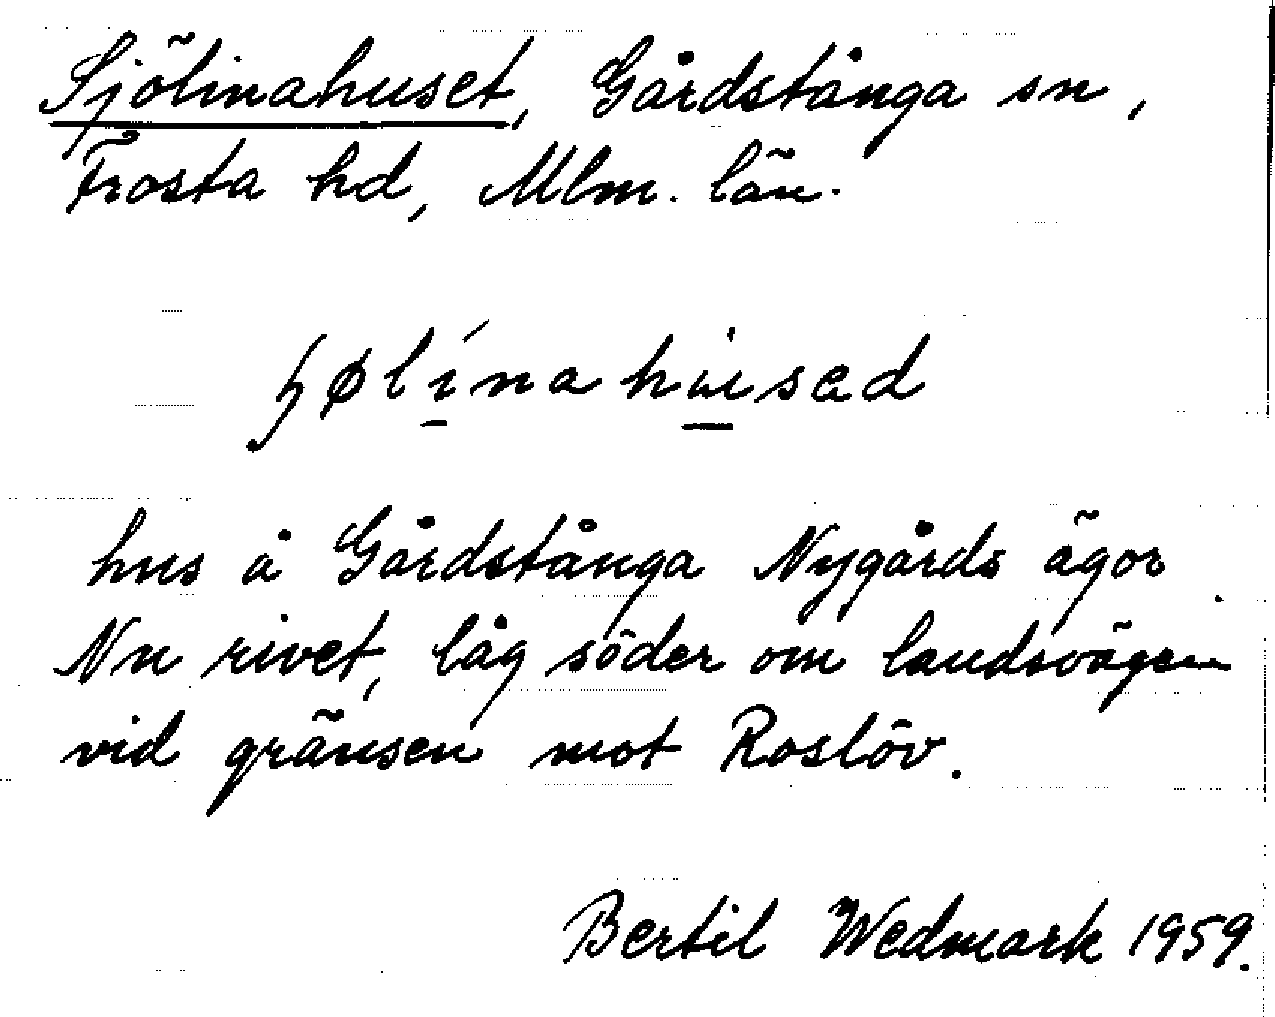 Sjölinahuset, Gårdstånga sn,
Frosta hd, Mlm. län.
hus å Gårdstånga Nygårds ägor.
Nu rivet, låg söder om landsvägen
vid gränsen mot Roslöv.
Bertil Wedmark 1959.